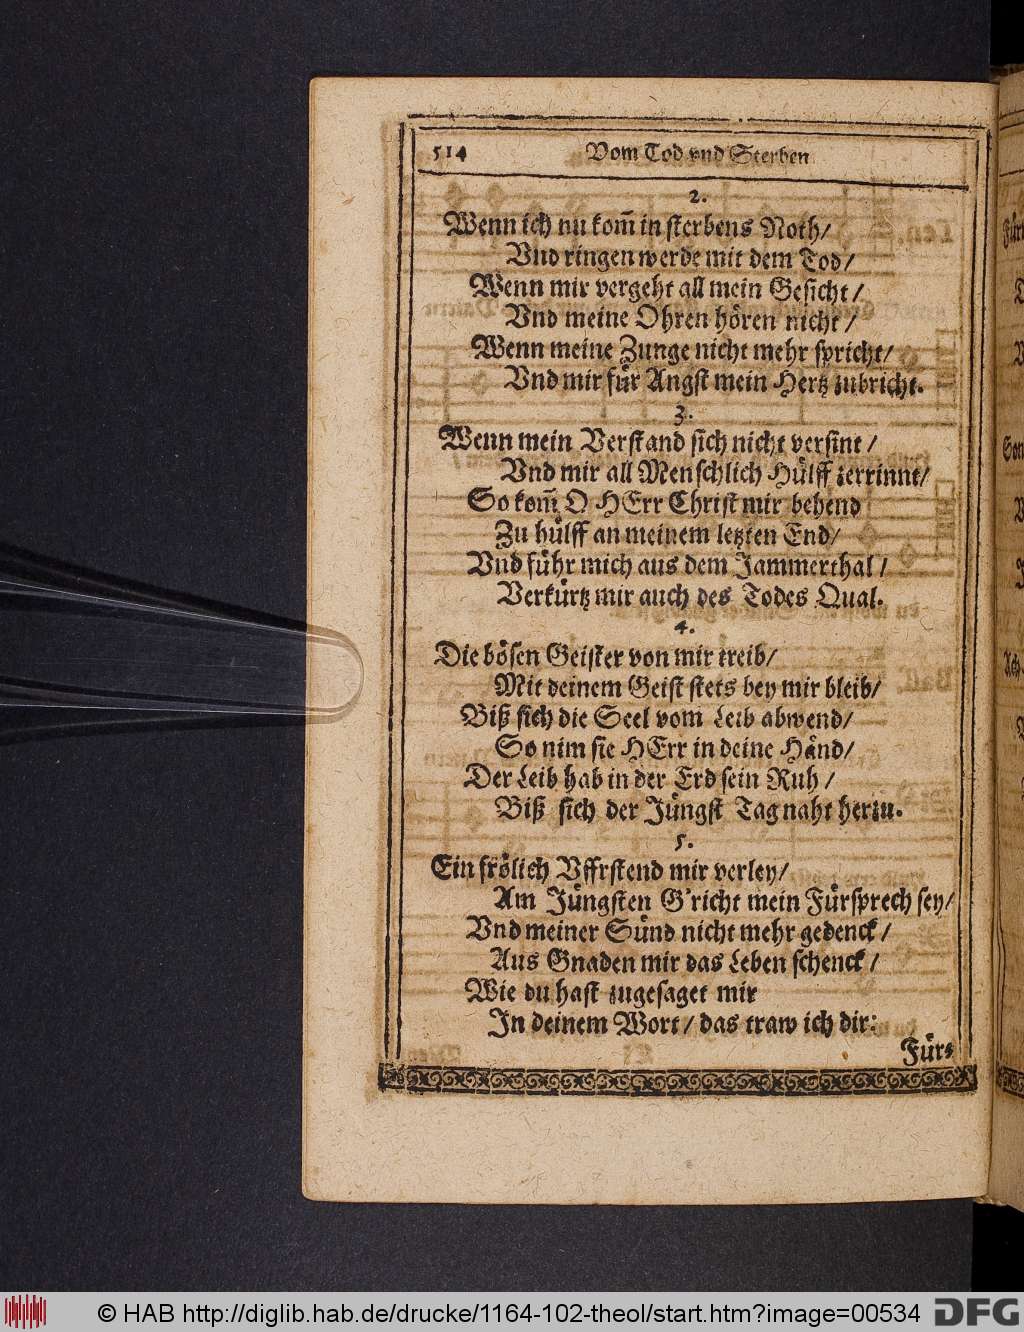 514 Vom Tod vnd Sterben
2.
Wenn ich nu kom̃ in sterbens Noth/
Vnd ringen werde mit dem Tod/
Wenn mir vergeht all mein Gesicht/
Vnd meine Ohren hören nicht/
Wenn meine Zunge nicht mehr spricht/
Vnd mir für Angst mein Hertz zubricht.
3.
Wenn mein Verstand sich nicht versint/
Vnd mir all Menschlich Hülff zerrinnt/
So kom̃ O HErr Christ mir behend
Zu hülff an meinem letzten End/
Vnd führ mich aus dem Jammerthal/
Verkürtz mir auch des Todes Qual.
4.
Die bösen Geister von mir treib/
Mit deinem Geist stets bey mir bleib/
Biß sich die Seel vom Leib abwend/
So nim sie HErr in deine Händ/
Der Leib hab in der Erd sein Ruh/
Biß sich der Jüngst Tag naht herzu.
5.
Ein frölich Vffrstend mir verley/
Am Jüngsten G'richt mein Fürsprech sey/
Vnd meiner Sünd nicht mehr gedenck/
Aus Gnaden mir das Leben schenck/
Wie du hast zugesaget mir
In deinem Wort/ das traw ich dir:
Für-
© HAB http://diglib.hab.de/drucke/1164-102-theol/start.htm?image=00534 DFG